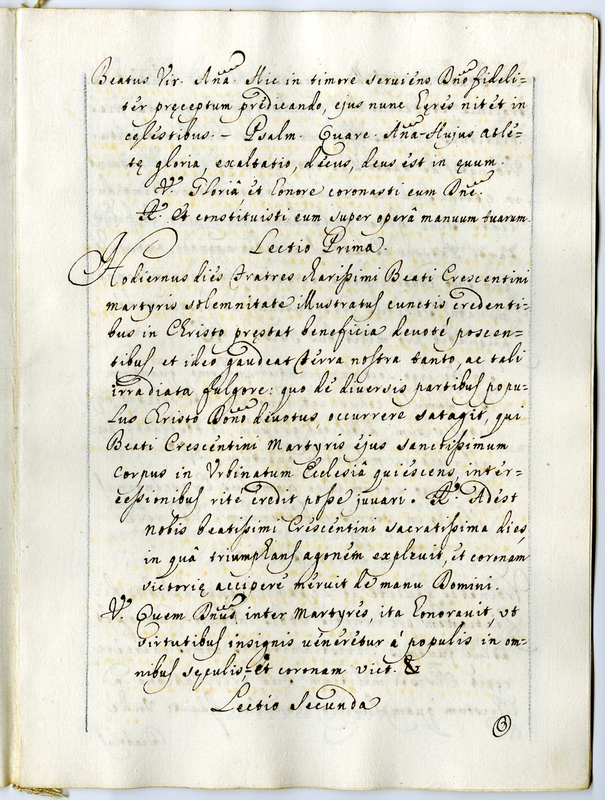 Beatus Vir. Aña. Hic in timore seruiens Dño fideli-
tèr pręceptum prędicando, ejus nunc Hęres nitèt in
cęlestibus. - Psalm. Quare. Aña. Hujus Atlè-
tę gloria, exaltatio, dècus, deus est in ęuum.
V. Gloriâ èt honore coronasti eum Dñe.
R. Et constituisti eum super operâ manuum tuarum.
Lectio Prima.
Hodiernus dies Fratres charissimi Beati Crescentini
martyris solemnitate illustratus cunctis credenti-
bus in Christo pręstat beneficia deuotè poscen-
tibus, et ideo gaudeat tèrra nostra tanto, ac tali
irradiata fulgore: quo dè diuersis partibus popu-
lus Christo Domo deuotus, occurrere satagit, qui
Beati Crescentini Martyris ejus sanctissimum
corpus in Vrbinatum Ecclesiâ quiescens, inter-
cessionibus ritè credit posse juuari. R. Adest
nobis beatissimi Crescentini sacratissima dies,
in quâ triumphans agonèm expleuit, èt coronam
victorię accipere mèruit dè manu Domini.
V. Quem Dñus inter Martyres, ita honorauit, vt
virtutibus insignis uènerètur à populis in om-
nibus sęculis, et coronam vict. &
Lectio Secunda
3